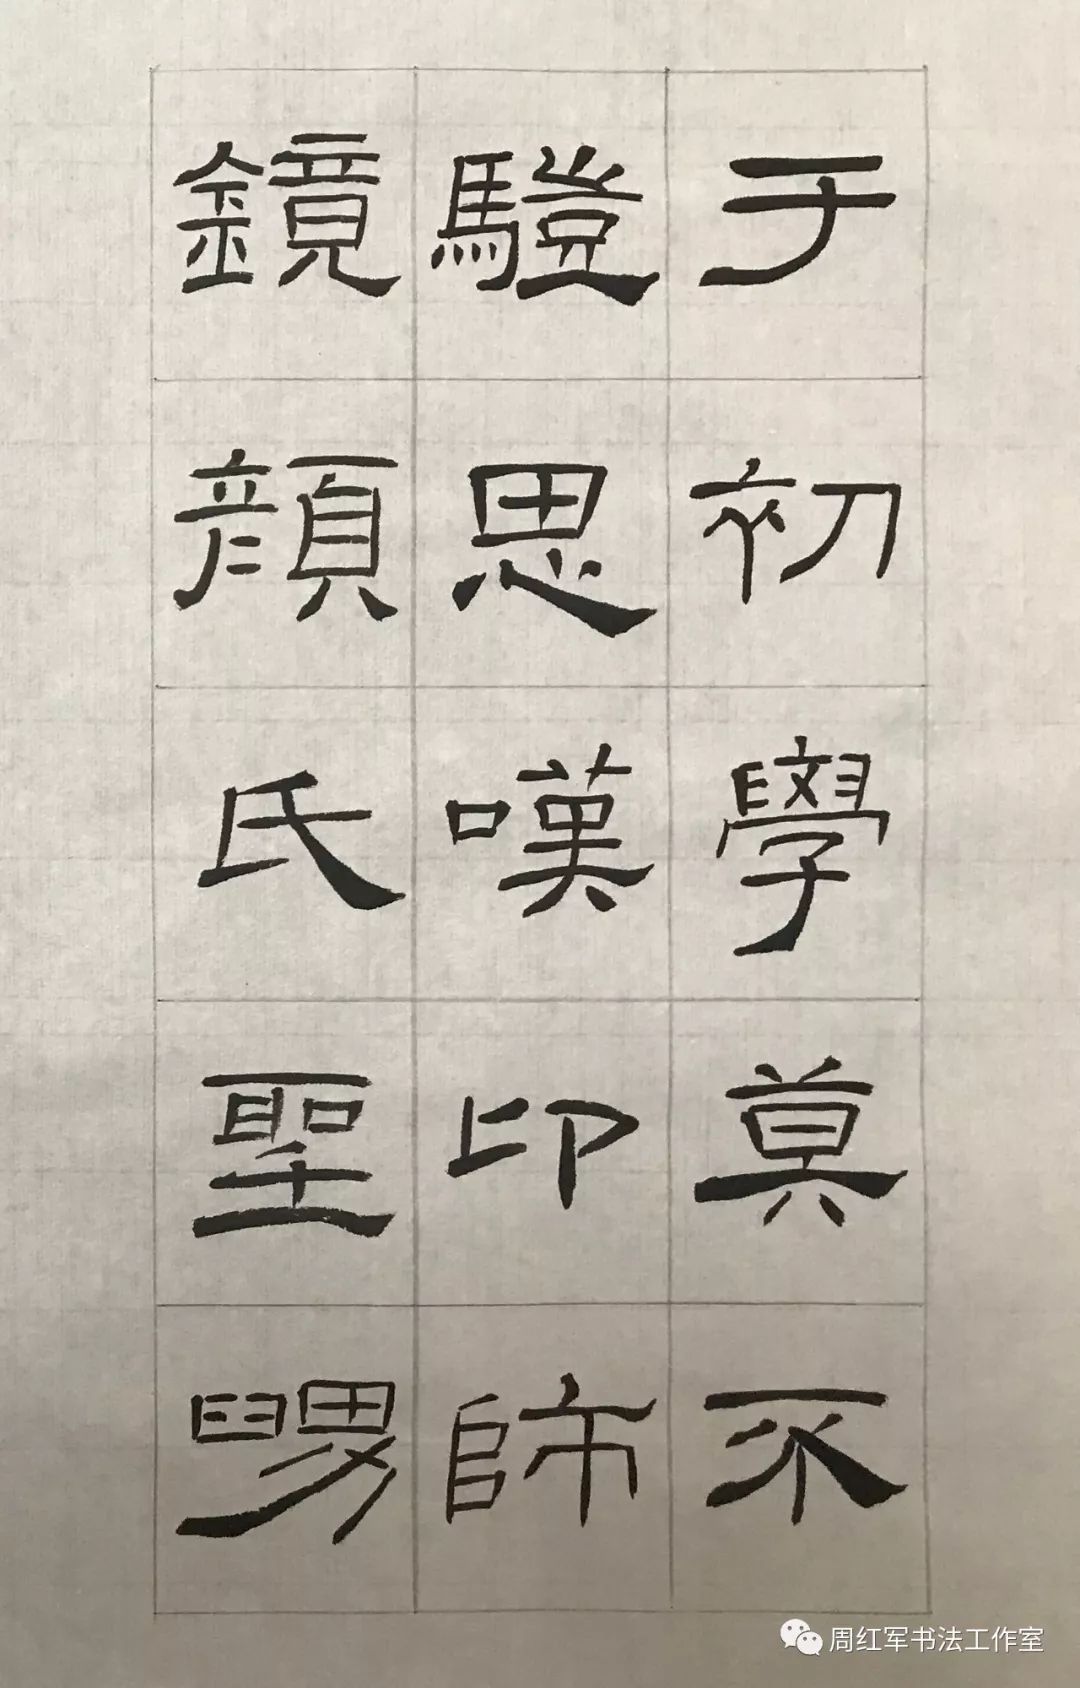 于初學莫不
驥思嘆卬師
鏡顏氏聖舅
周红军书法工作室